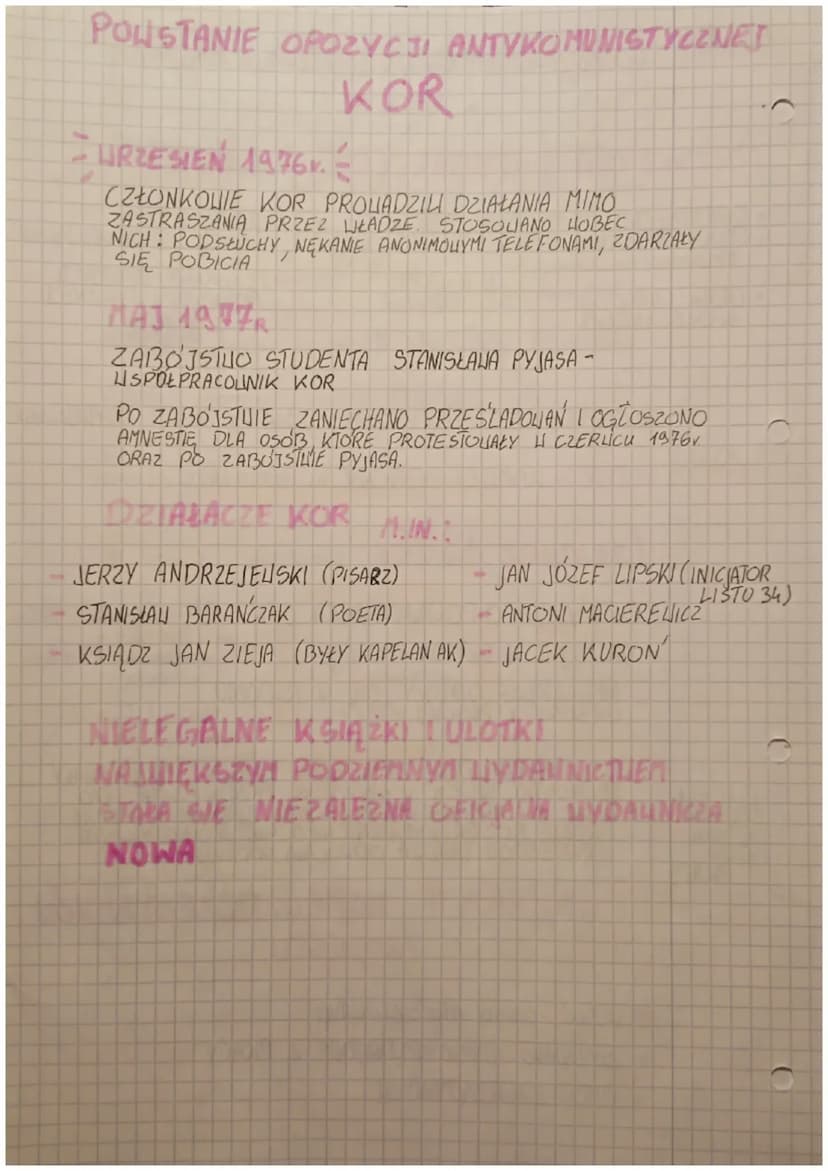 POWSTANIE OPOZYCJI ANTYKOMUNISTYCZNEJ
KOR
WRZESIEŃ 1976r.
CZŁONKOWIE KOR PROWADZILI DZIAŁANIA MIMO
ZASTRASZANIA PRZEZ WŁADZE. STOSOWANO WOBEC
NICH: PODSŁUCHY, NĘKANIE ANONIMOWYMI TELEFONAMI, ZDARZAŁY
SIĘ POBICIA
MAJ 1977R
ZABÓJSTWO STUDENTA STANISŁAWA PYJASA -
WSPÓŁPRACOWNIK KOR
PO ZABÓJSTWIE ZANIECHANO PRZEŚLADOWAŃ I OGŁOSZONO
AMNESTIĘ DLA OSÓB, KTÓRE PROTESTOWAŁY W CZERWCU 1976r.
ORAZ PO ZABÓJSTWIE PYJASA.
DZIAŁACZE KOR M.IN.:
- JERZY ANDRZEJEWSKI (PISARZ)
- STANISŁAW BARAŃCZAK (POETA)
- KSIĄDZ JAN ZIEJA (BYŁY KAPELAN AK)
- JAN JÓZEF LIPSKI (INICJATOR
LISTU 34)
- ANTONI MACIEREWICZ
- JACEK KUROŃ
NIELEGALNE KSIĄŻKI I ULOTKI
NAJWIĘKSZYM PODZIEMNYM WYDAWNICTWEM
STAŁA SIĘ NIEZALEŻNA OFICJALNA WYDAWNICZA
NOWA